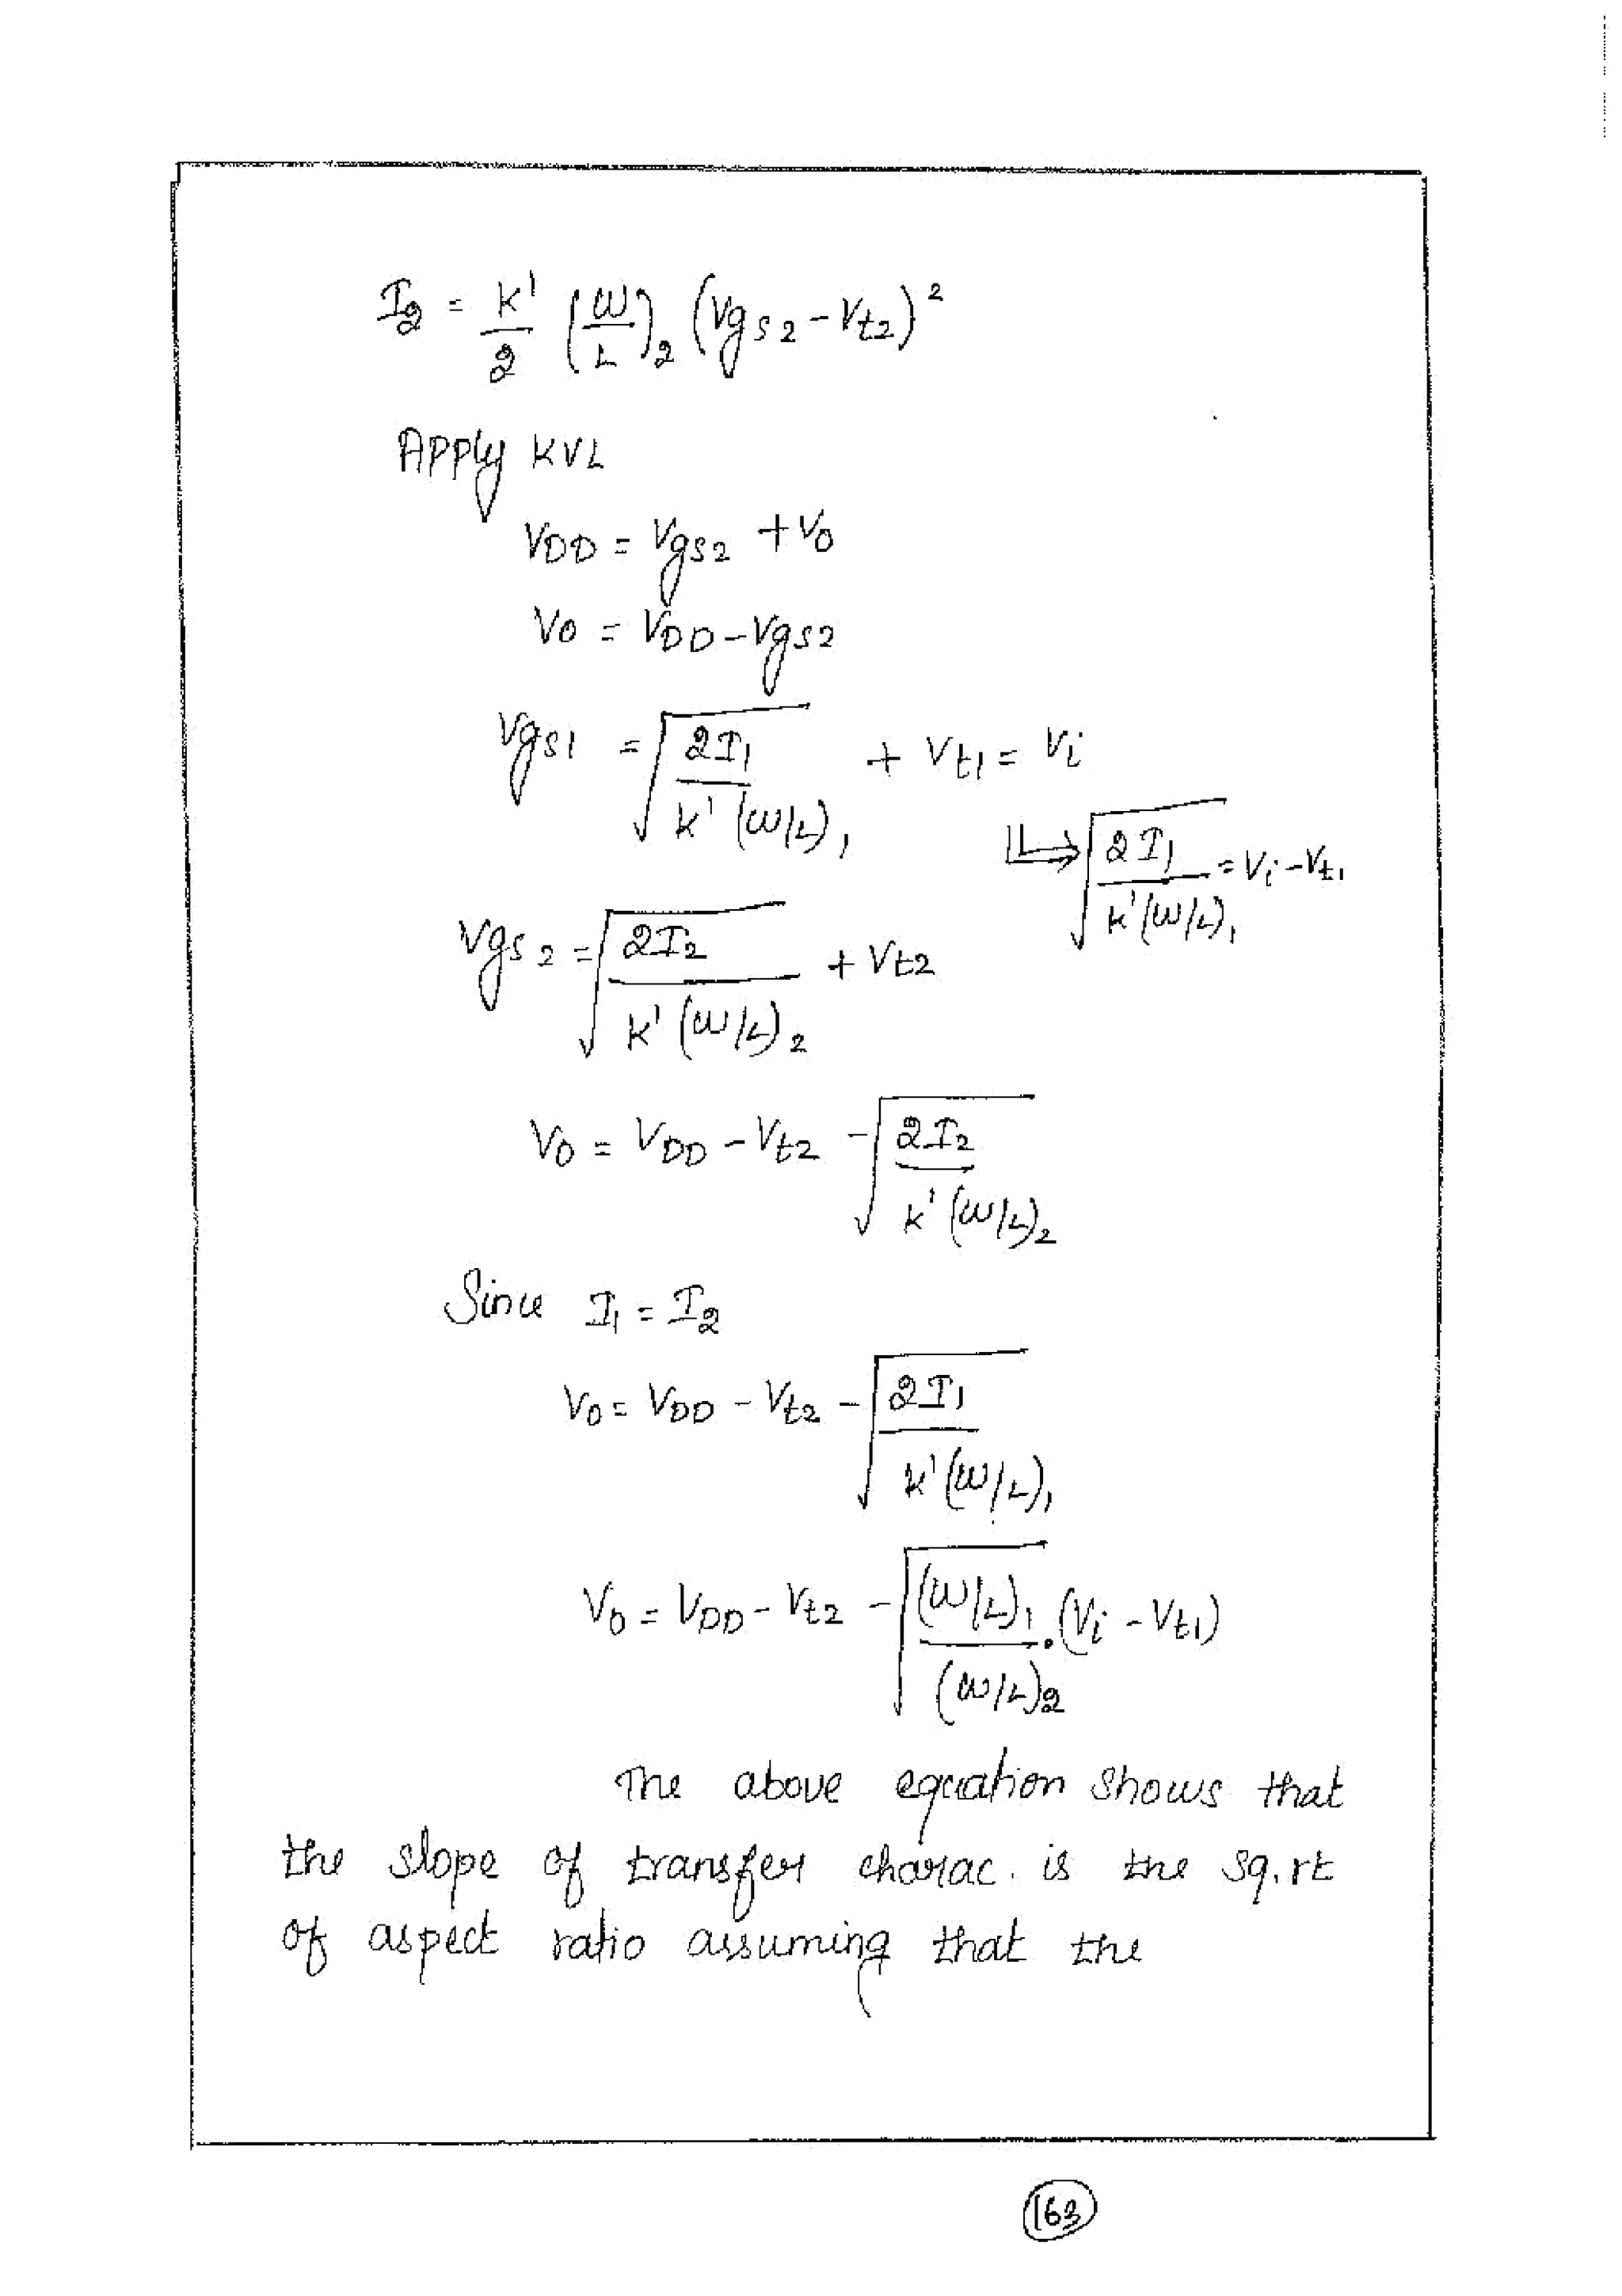 I2 = K'/2 (W/L)2 (Vgs2 - Vt2)²
Apply KVL
VDD = Vgs2 + Vo
Vo = VDD - Vgs2
Vgs1 = √(2I1 / K'(W/L)1) + Vt1 = Vi
⇒ √(2I1 / K'(W/L)1) = Vi - Vt1
Vgs2 = √(2I2 / K'(W/L)2) + Vt2
Vo = VDD - Vt2 - √(2I2 / K'(W/L)2)
Since I1 = I2
Vo = VDD - Vt2 - √(2I1 / K'(W/L)1)
Vo = VDD - Vt2 - √((W/L)1 / (W/L)2) . (Vi - Vt1)
The above equation shows that
the slope of transfer charac. is the sq.rt
of aspect ratio assuming that the
163